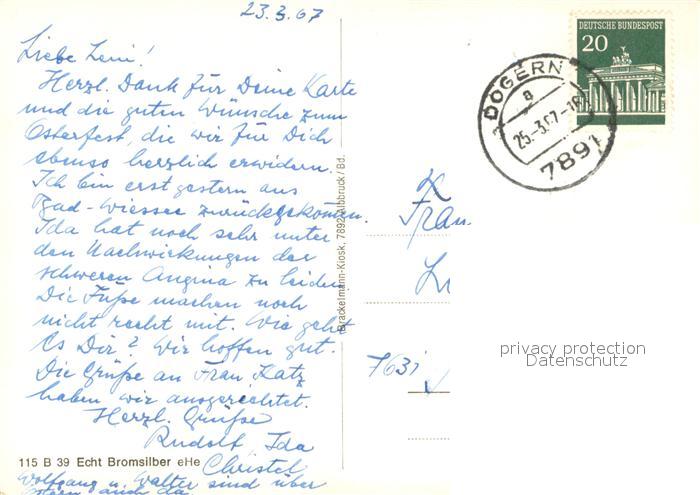 23.3.67
Liebe Leni!
Herzl. Dank für Deine Karte
und die guten Wünsche zum
Osterfest, die wir für Dich
ebenso herzlich erwidern.
Ich bin erst gestern aus
Bad-Wiessee zurückgekommen.
Ida hat noch sehr unter
den Nachwirkungen der
schweren Angina zu leiden.
Die Füße machen noch
nicht recht mit. Wie geht
es Dir? Wir hoffen gut.
Die Grüße an Frau Katz
haben wir ausgerechtet.
Herzl. Grüße
Rudolf, Ida
Christel
Wolfgang u. Walter sind über
Ostern auch da
115 B 39 Echt Bromsilber eHe
Brackelmann-Kiosk, 7892 Albbruck / Bd.
DEUTSCHE BUNDESPOST
20
DOGERN
a
25.-3.67-18
7891
Frau
7631
privacy protection
Datenschutz